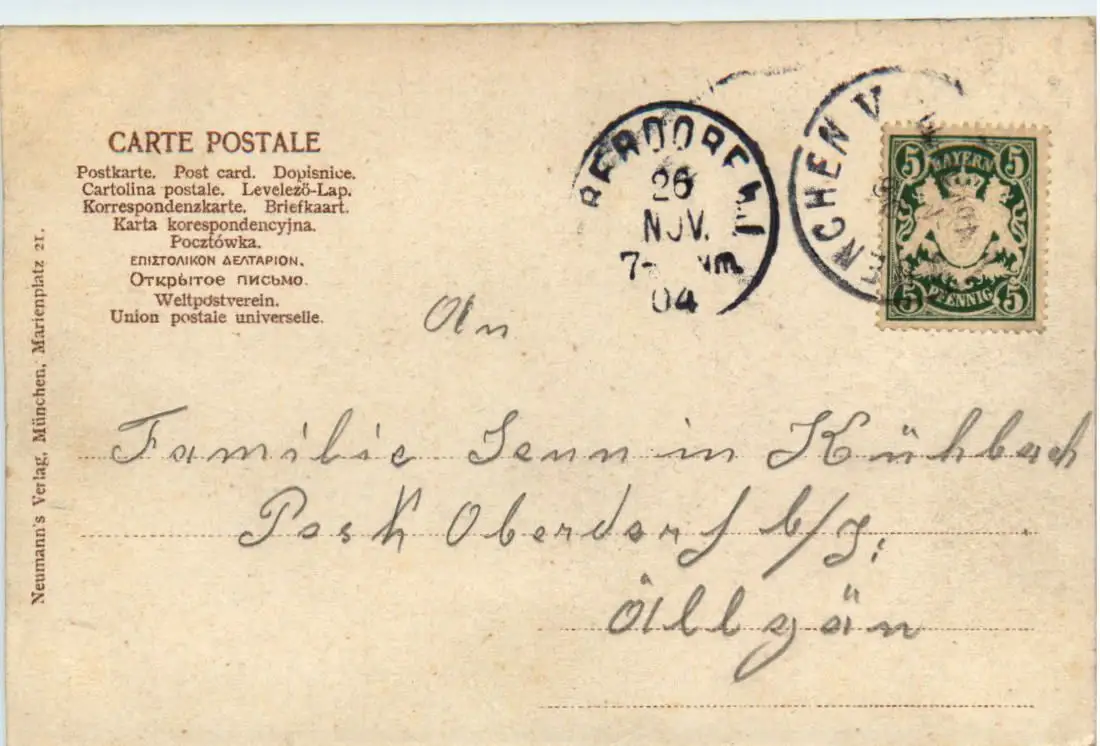 CARTE POSTALE
Postkarte. Post card. Dopisnice.
Cartolina postale. Levelező-Lap.
Korrespondenzkarte. Briefkaart.
Karta korespondencyjna.
Pocztówka.
ΕΠΙΣΤΟΛΙΚΟΝ ΔΕΛΤΑΡΙΟΝ.
Открытое письмо.
Weltpostverein.
Union postale universelle.
Neumann's Verlag, München, Marienplatz 21.
BERDORF b.I
26
NOV.
7- Nm.
04
ENCHEN V
5 BAYERN 5
5 PFENNIG 5
An
Familie Senn in Kühbach
Post Oberdorf b/J:
Allgäu